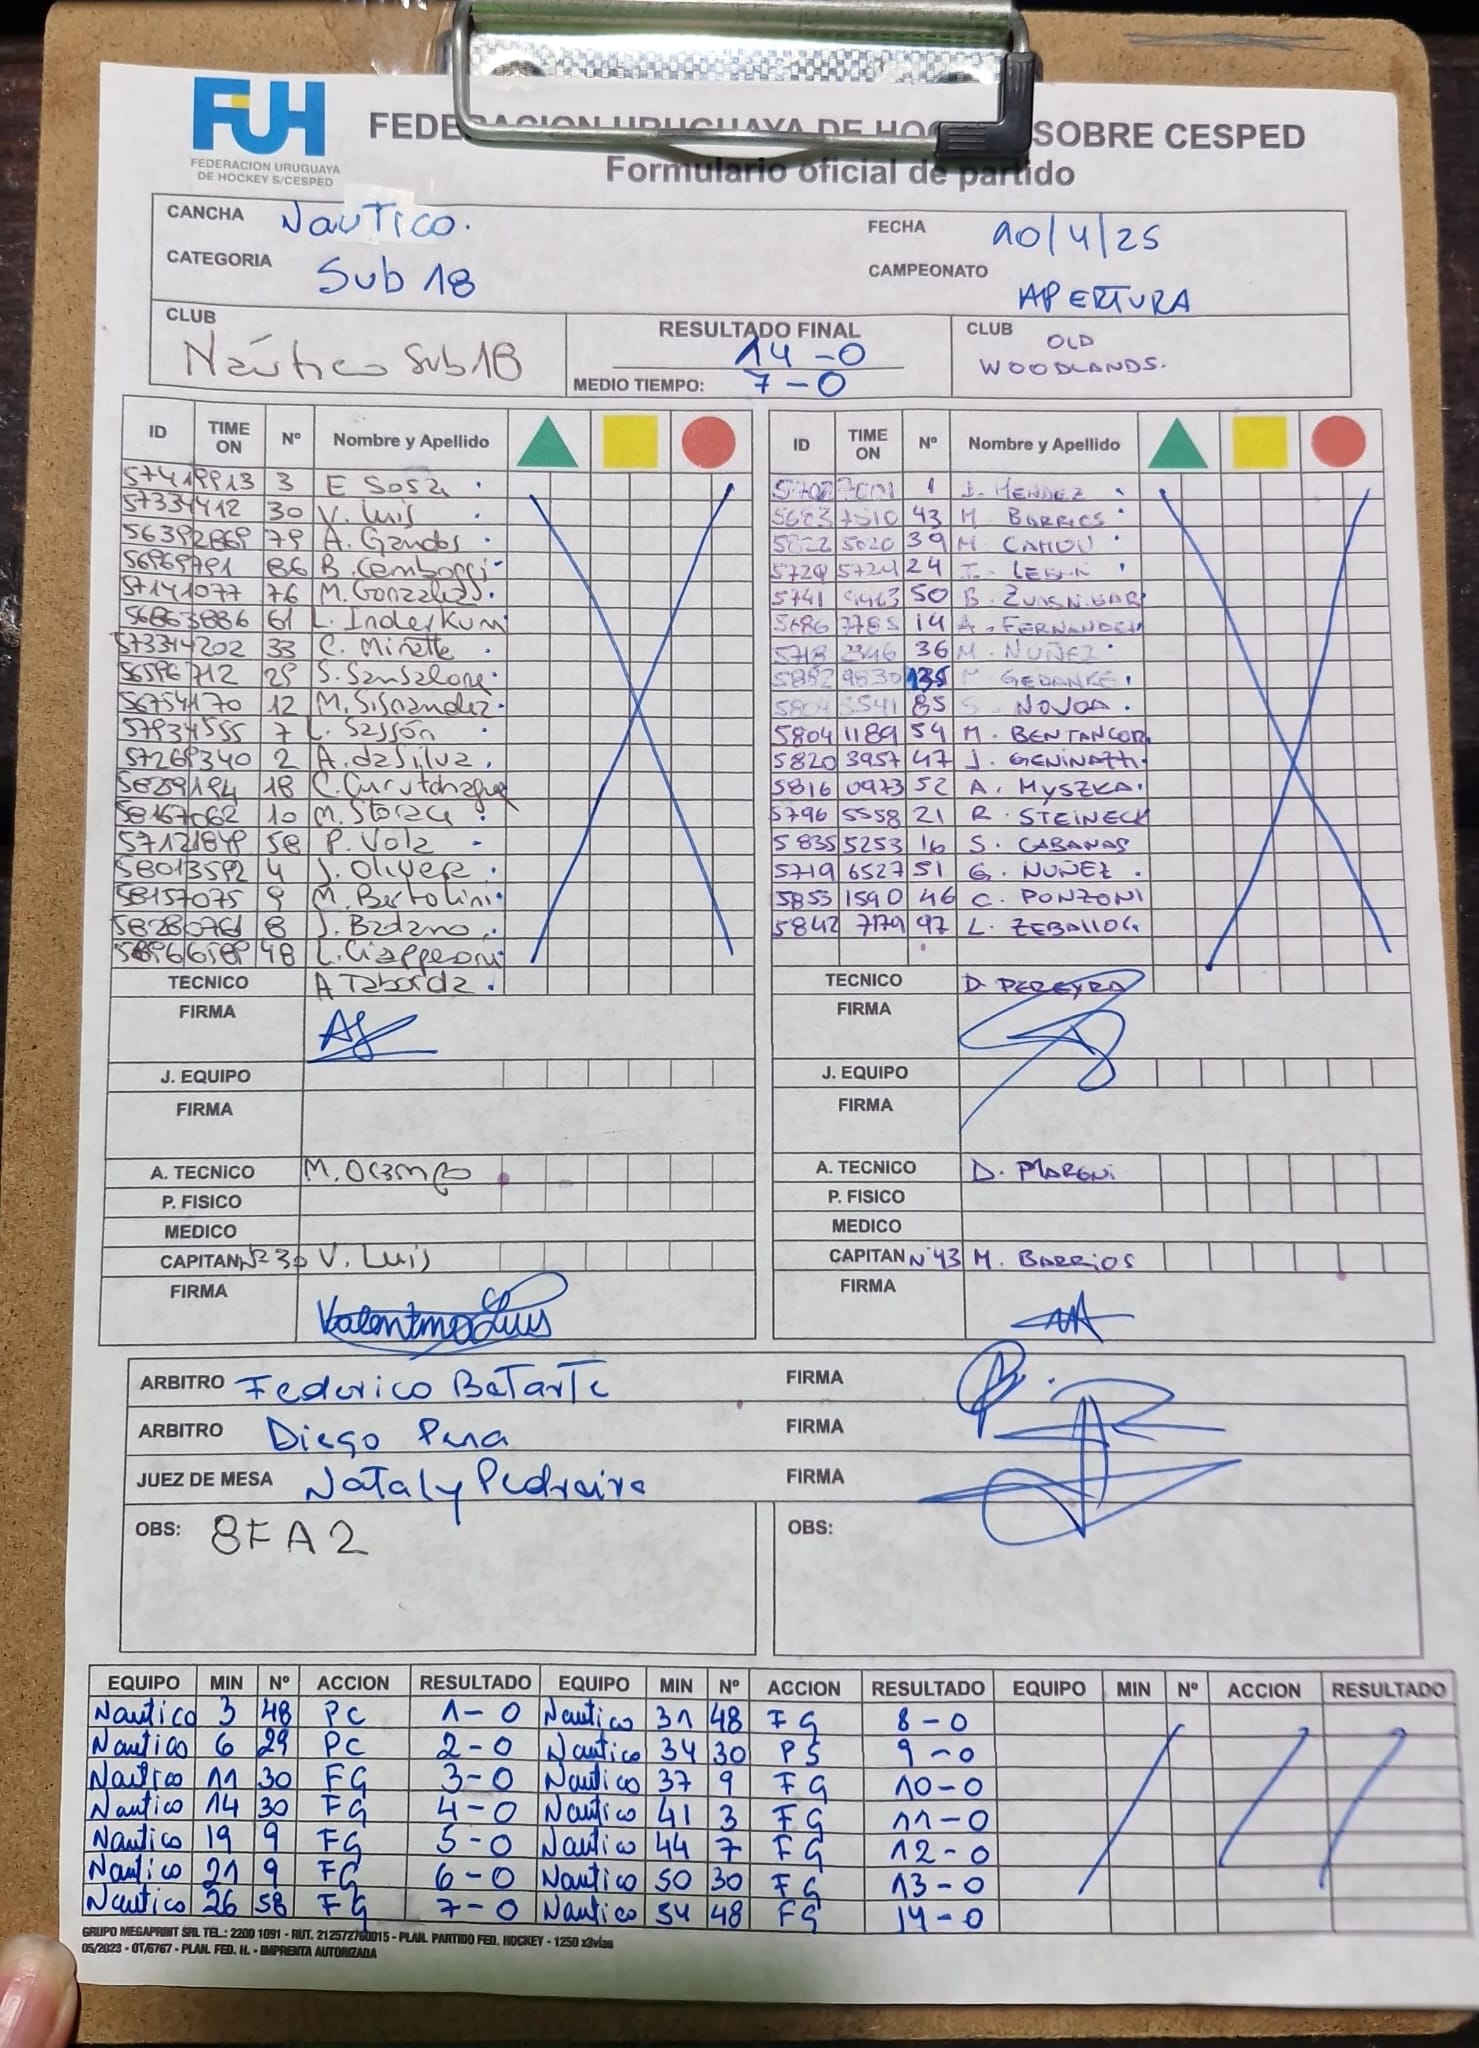 FUH
FEDERACION URUGUAYA
DE HOCKEY S/CESPED
FEDERACION URUGUAYA DE HOCKEY SOBRE CESPED
Formulario oficial de partido
CANCHA Nautico. FECHA 10/4/25
CATEGORIA Sub 18 CAMPEONATO APERTURA
CLUB Náutico Sub 18 RESULTADO FINAL 14-0 CLUB OLD WOODLANDS.
MEDIO TIEMPO: 7-0
ID TIME ON Nº Nombre y Apellido ID TIME ON Nº Nombre y Apellido
3 E Sosa 1 J. MENDEZ
57334412 30 V. Luis 43 M. BARRIOS
79 A. Gandos 39 M. CAHOU
86 B. 5729 5724 24 LEBIN
57141077 76 M. Gonzalez 5741 50 B.
56863886 61 L. Inderkum 5686 14 A. FERNANDEZ
573344202 33 C. Minette 5718 2346 36 M. NUÑEZ
56596712 29 S. Sansalone 135 GEDANKE
56754170 12 M. Sisnandez 85 S. NOVOA
57934555 7 L. Sassón 5804 1189 54 M. BENTANCOR
57269340 2 A. da Silva 5820 3957 47 J. GENINAZZI
58289184 18 C. 5816 0973 52 A. MYSZKA
58167062 10 M. Storace 5796 5558 21 R. STEINECK
57121849 58 P. Volz 5835 5253 16 S. CABANAS
58013592 4 J. Olivera 5719 6527 51 G. NUÑEZ
58157075 9 M. Bertolini 5853 1590 46 C. PONZONI
58280761 8 J. Badano 5842 7179 97 L. ZEBALLOS
48 L. Giappesoni
TECNICO A Taborda TECNICO D. PEREYRA
FIRMA FIRMA
J. EQUIPO J. EQUIPO
FIRMA FIRMA
A. TECNICO M. Ocampo A. TECNICO D. MARONI
P. FISICO P. FISICO
MEDICO MEDICO
CAPITAN Nº 30 V. Luis CAPITAN Nº 43 M. BARRIOS
FIRMA Valentina Luis FIRMA
ARBITRO Federico Batarte FIRMA
ARBITRO Diego Pena FIRMA
JUEZ DE MESA Nataly Pedreira FIRMA
OBS: 8FA2 OBS:
EQUIPO MIN Nº ACCION RESULTADO EQUIPO MIN Nº ACCION RESULTADO EQUIPO MIN Nº ACCION RESULTADO
Nautico 3 48 PC 1-0 Nautico 31 48 FG 8-0
Nautico 6 29 PC 2-0 Nautico 34 30 PS 9-0
Nautico 11 30 FG 3-0 Nautico 37 9 FG 10-0
Nautico 14 30 FG 4-0 Nautico 41 3 FG 11-0
Nautico 19 9 FG 5-0 Nautico 44 7 FG 12-0
Nautico 21 9 FG 6-0 Nautico 50 30 FG 13-0
Nautico 26 58 FG 7-0 Nautico 54 48 FG 14-0
GRUPO MEGAPRINT SRL TEL.: 2200 1091 - RUT. 212572760015 - PLAN. PARTIDO FED. HOCKEY - 1250 x3vías
05/2023 - OT/6767 - PLAN. FED. H. - IMPRENTA AUTORIZADA